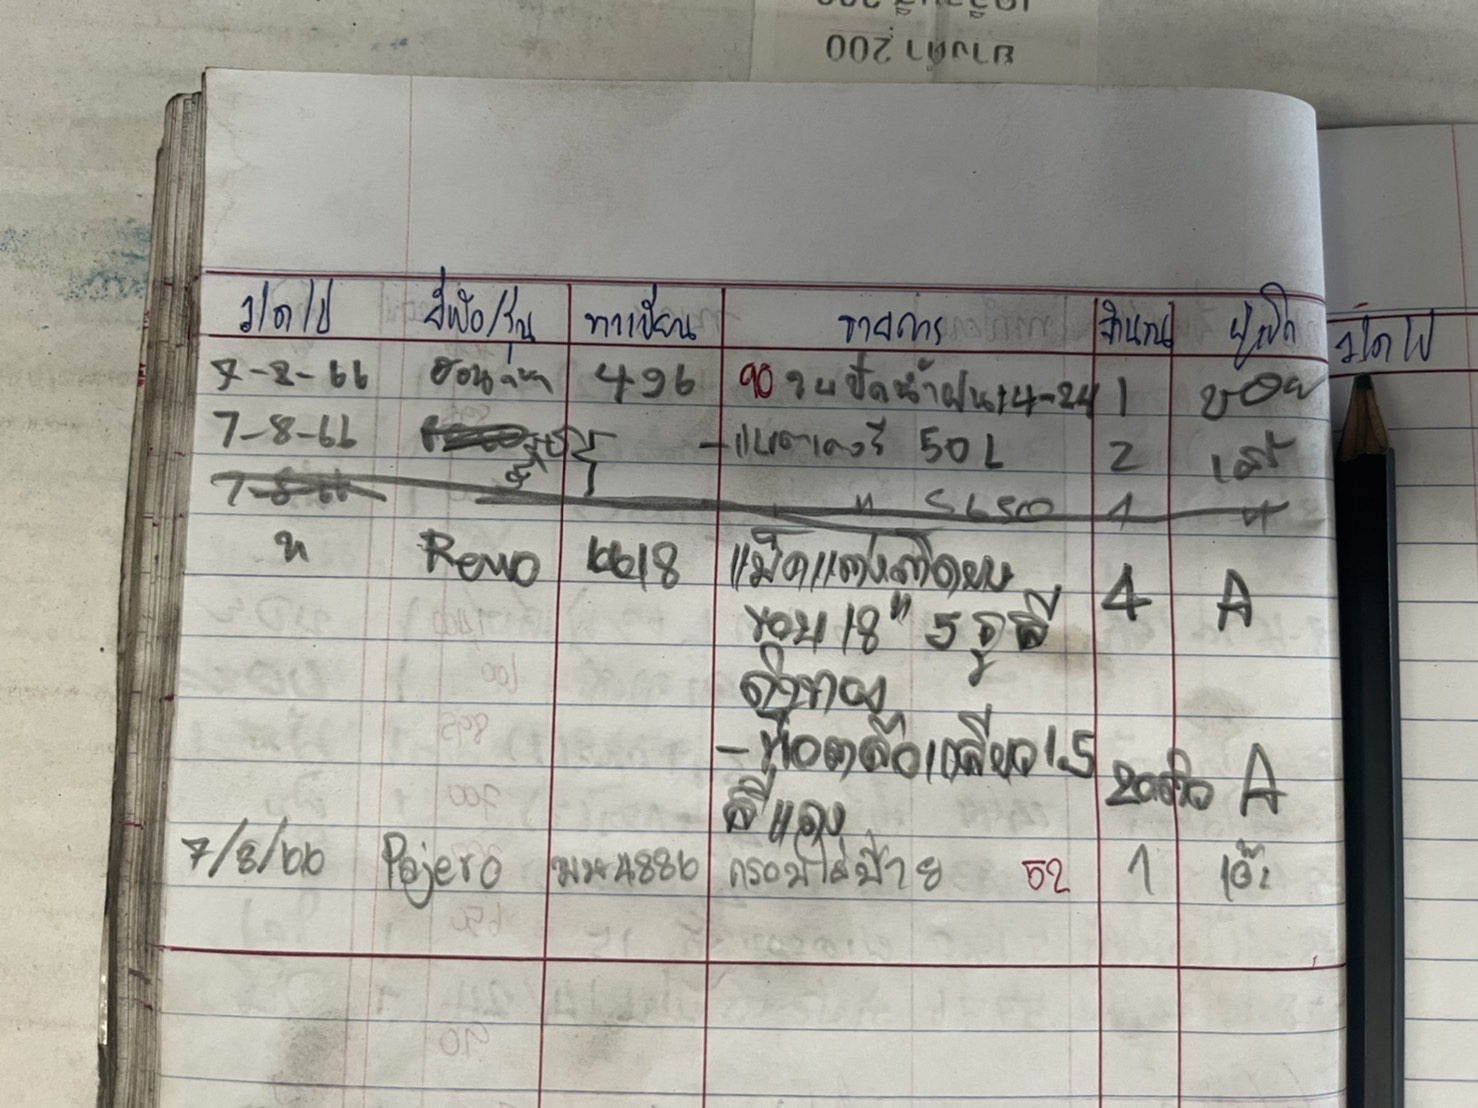 ยางดำ 200
ว/ด/ป ยี่ห้อ/รุ่น ทะเบียน รายการ จำนวน ผู้เบิก
7-8-66 ฮอนด้า 496 90 ใบปัดน้ำฝน 14-24 1 บอย
7-8-66 - แบตเตอรี่ 50L 2
7-8-66 " SL50 1 "
" Revo 6618 แม็ดแต่งติดยบ 4 A
ขอบ 18" 5 รู สี
ดำทอง
- น็อตล้อเกลียว 1.5 A
สีแดง
7/8/66 Pajero 4886 กรอบใส่ป้าย 52 1 เอ๊ะ
ว/ด/ป